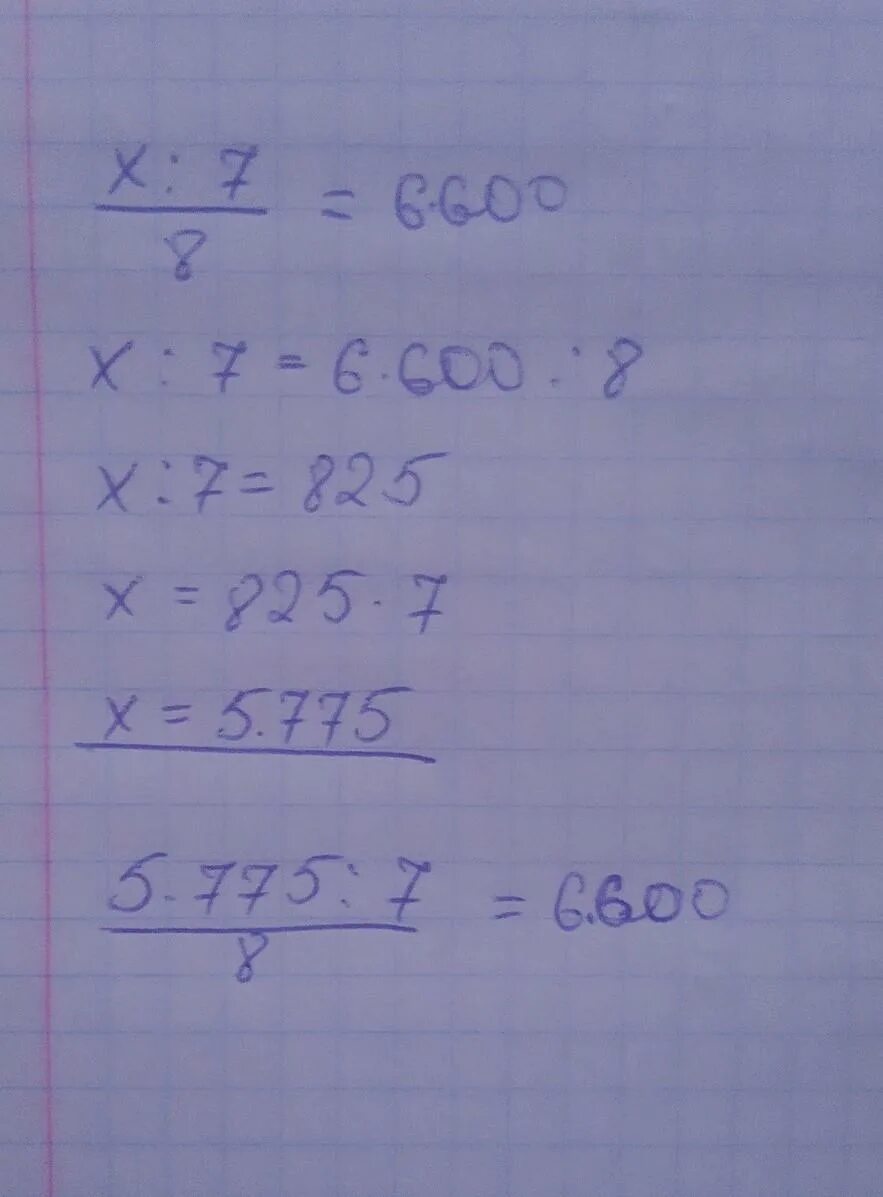 x : 7
8
= 6.600
x : 7 = 6.600 : 8
x : 7 = 825
x = 825 · 7
x = 5.775
5.775 : 7
8
= 6.600